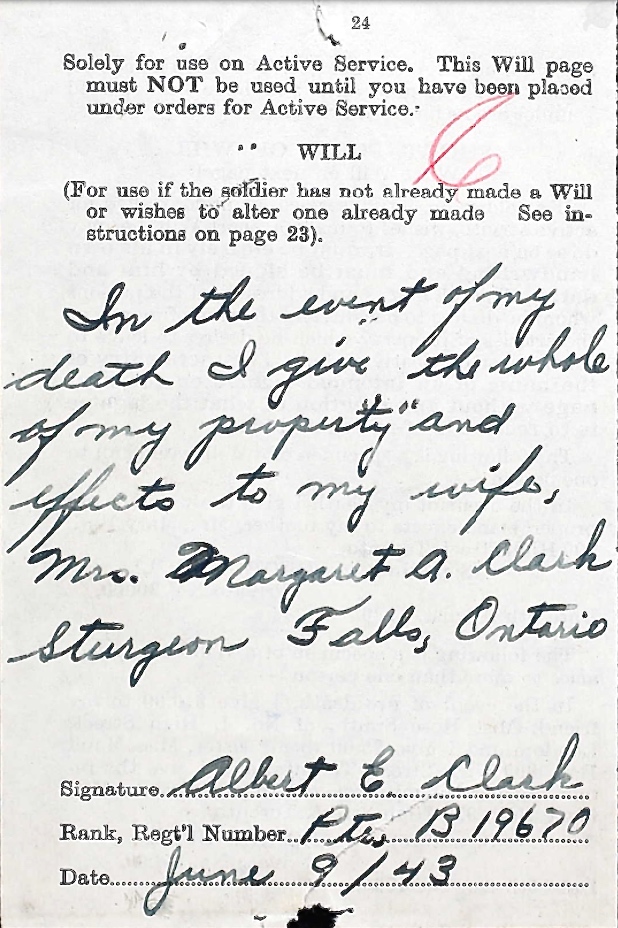 24
Solely for use on Active Service. This Will page
must NOT be used until you have been placed
under orders for Active Service.
WILL
(For use if the soldier has not already made a Will
or wishes to alter one already made See in-
structions on page 23).
In the event of my
death I give the whole
of my property and
effects to my wife,
Mrs. Margaret A. Clark
Sturgeon Falls, Ontario
Signature Albert E. Clark
Rank, Regt'l Number Pte. B 19670
Date June 9/43